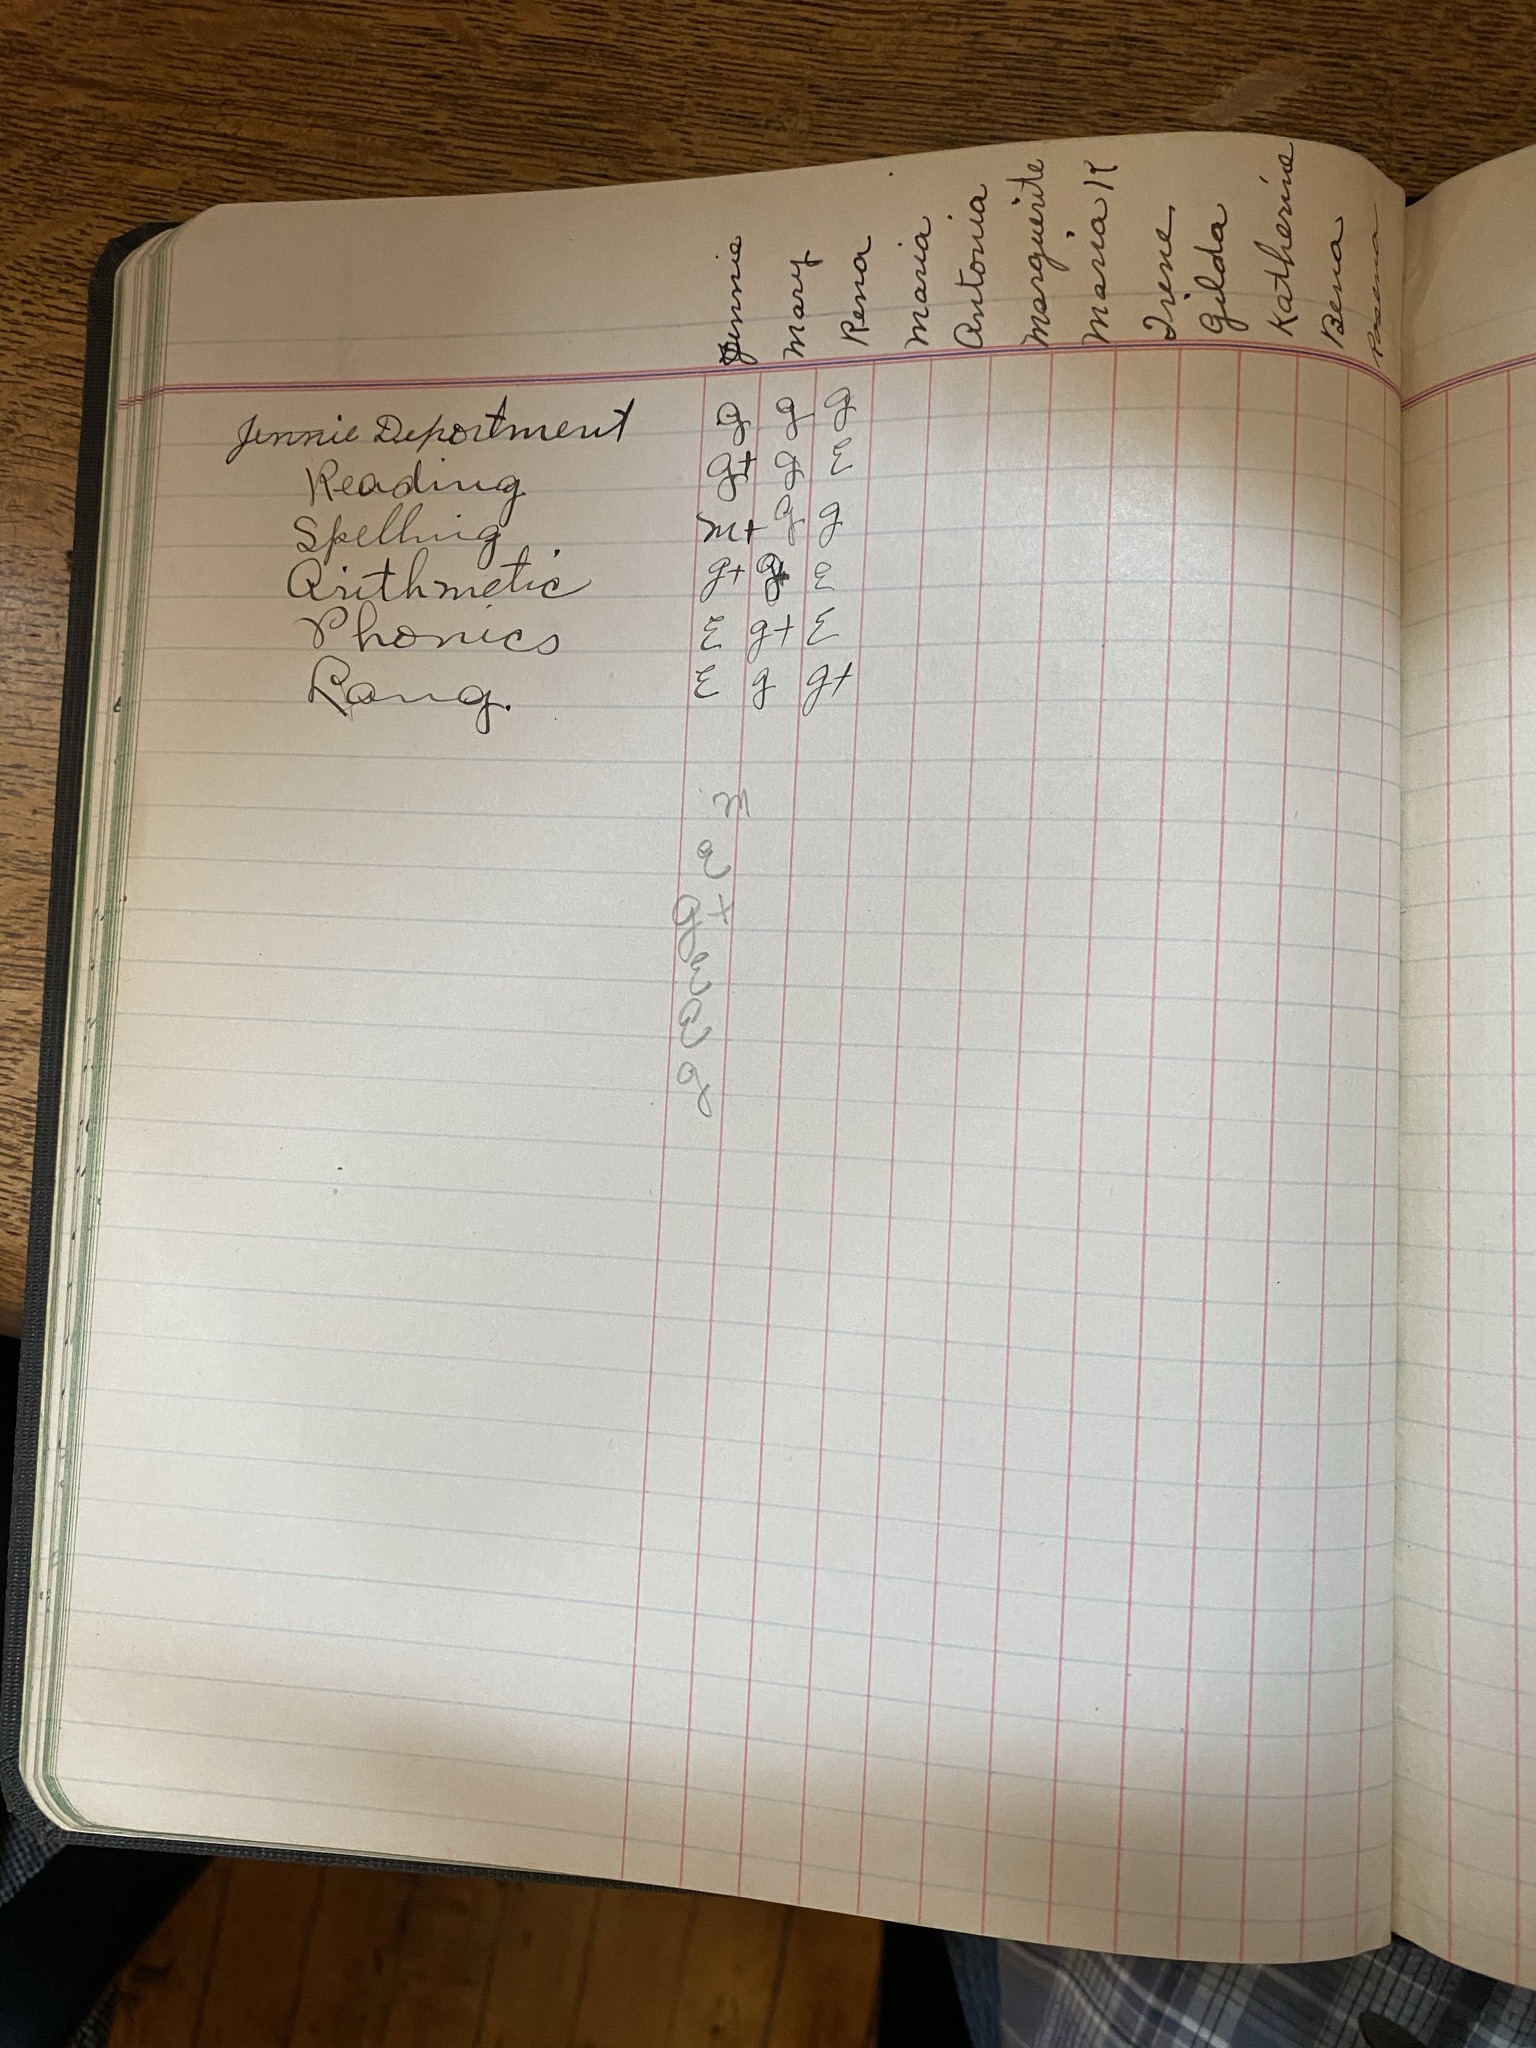 Jennie
Mary
Rena
Maria
Antonia
Marguerite
Maria K
Irene
Gilda
Katherine
Bena
Jennie Deportment g g g
Reading g+ g E
Spelling m+ g g
Arithmetic g+ g+ E
Phonics E g+ E
Lang. E g g+
m
E
g+
E
E
g